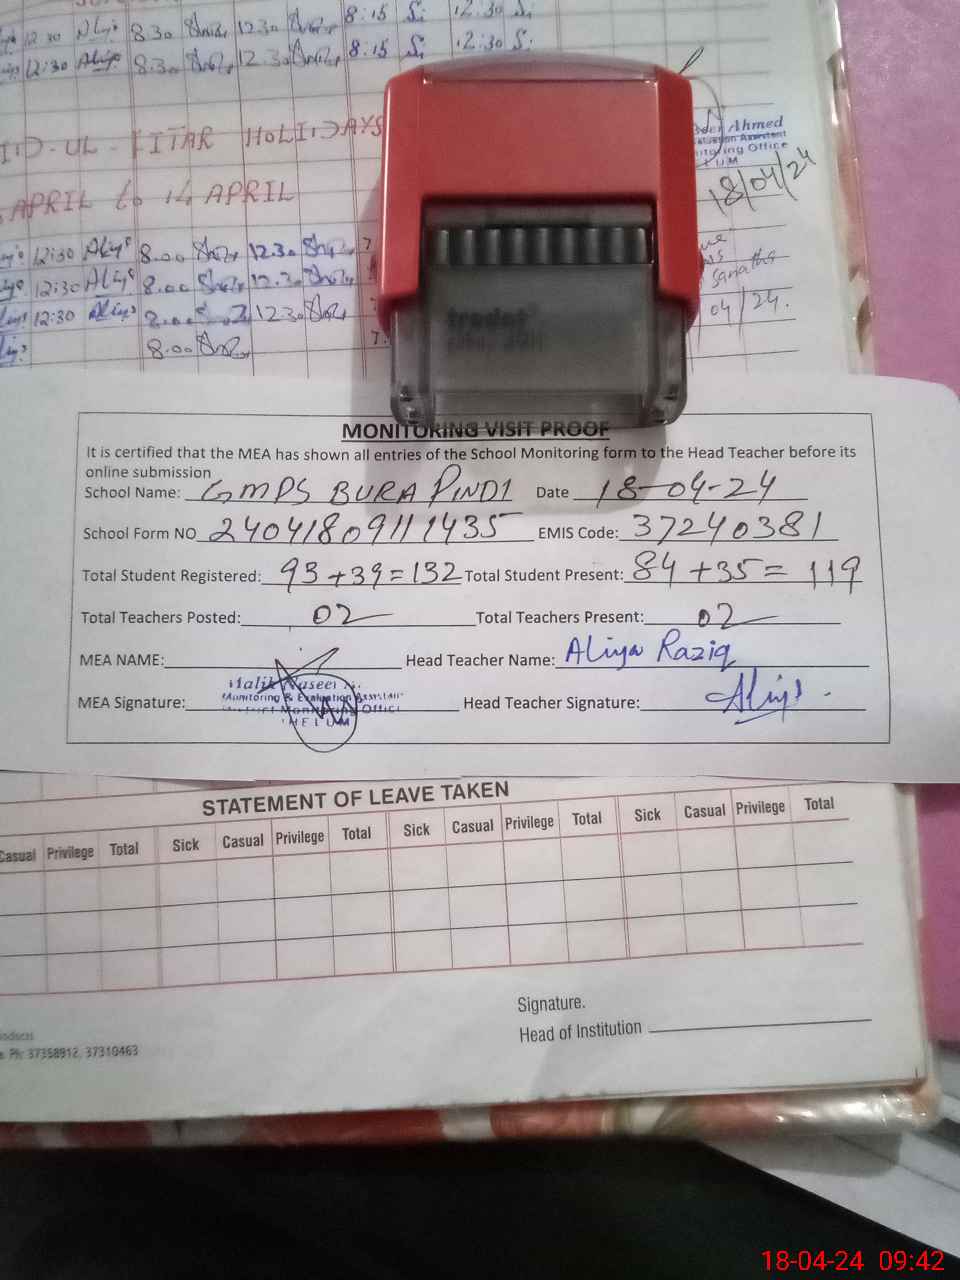 12:30 Aliya 8.30 12.30 8:15 12:30
12:30 Aliya 8.30 12.30 8:15 12:30
EID-UL-FITAR HOLIDAYS
APRIL to 14 APRIL
Ahmed
Evaluation Assistent
Monitoring Office
LUM
18/04/24
12:30 Aliya 8.00 12.30 7.
12:30 Aliya 8.00 12.30
12:30 Aliya 8.00 12.30
8.00 7.
04/24.
trodat
MONITORING VISIT PROOF
It is certified that the MEA has shown all entries of the School Monitoring form to the Head Teacher before its
online submission
School Name: GMPS BURA PINDI Date 18-04-24
School Form NO 24041809111435 EMIS Code: 37240381
Total Student Registered: 93+39=132 Total Student Present: 84+35=119
Total Teachers Posted: 02 Total Teachers Present: 02
MEA NAME: Head Teacher Name: Aliya Raziq
Malik Naseer
Monitoring & Evaluation Assistant
MEA Signature: District Monitoring Office Head Teacher Signature: Aliya
JHELUM
STATEMENT OF LEAVE TAKEN
Casual Privilege Total Sick Casual Privilege Total Sick Casual Privilege Total Sick Casual Privilege Total
Signature.
Head of Institution
Ph: 37358912, 37310463
18-04-24 09:42